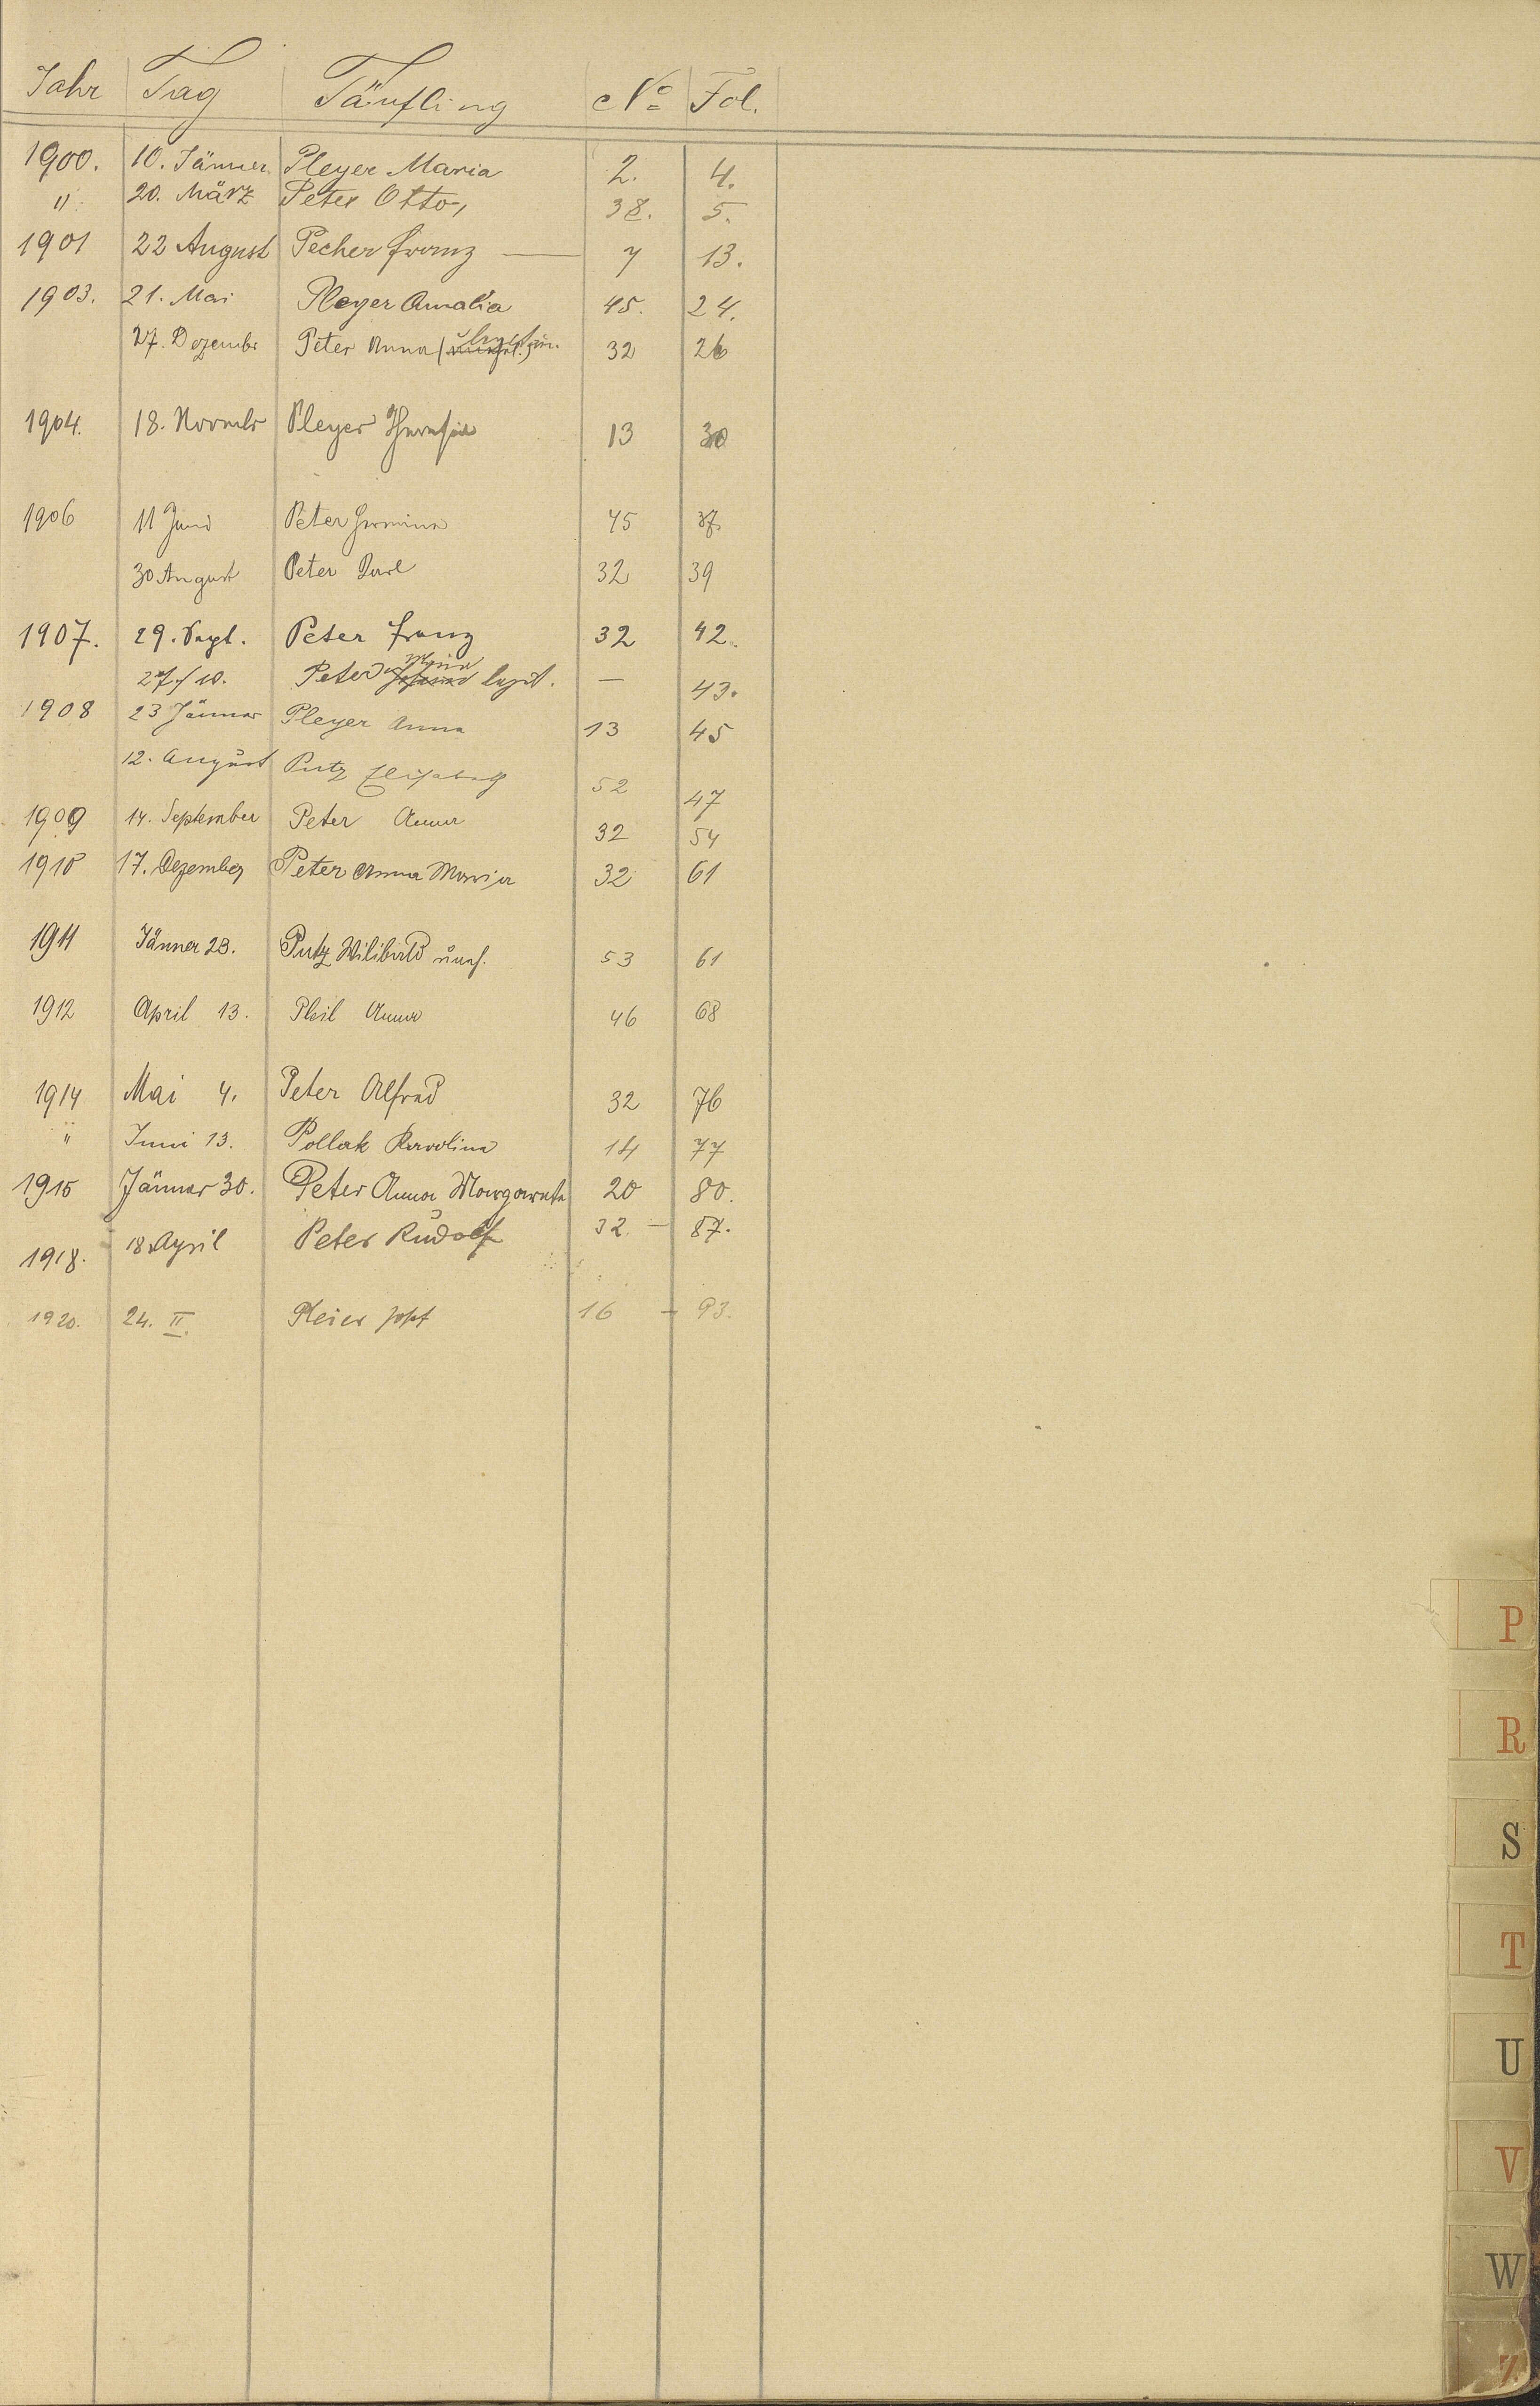 Jahr Tag Täufling No Fol.
1900. 10. Jänner Pleyer Maria 2. 4.
" 20. März Peter Otto, 38. 5.
1901 22 August Pecher Franz — 7 13.
1903. 21. Mai Pleyer Amalia 45. 24.
27. Dezember Peter Anna 32 26
1904. 18. Novembr Pleyer Theresia 13 30
1906 11 Juni Peter Hermine 45 37.
30 August Peter Karl 32 39
1907. 29. Sept. Peter Franz 32 42.
27./10. Peter legit. — 43.
1908 23 Jänner Pleyer Anna 13 45
12. August Putz Elisabeth 52 47
1909 14. September Peter Anna 32 54
1910 17. Dezember Peter Anna Maria 32 61
1911 Jänner 23. Putz Wilibald uneh. 53 61
1912 April 13. Pleil Anna 46 68
1914 Mai 4. Peter Alfred 32 76
" Juni 13. Pollak Karolina 14 77
1915 Jänner 30. Peter Anna Margareta 20 80.
1918. 18 April Peter Rudolf 32. — 87.
1920. 24. II. Pleier Josef 16 — 93.
P
R
S
T
U
V
W
Z